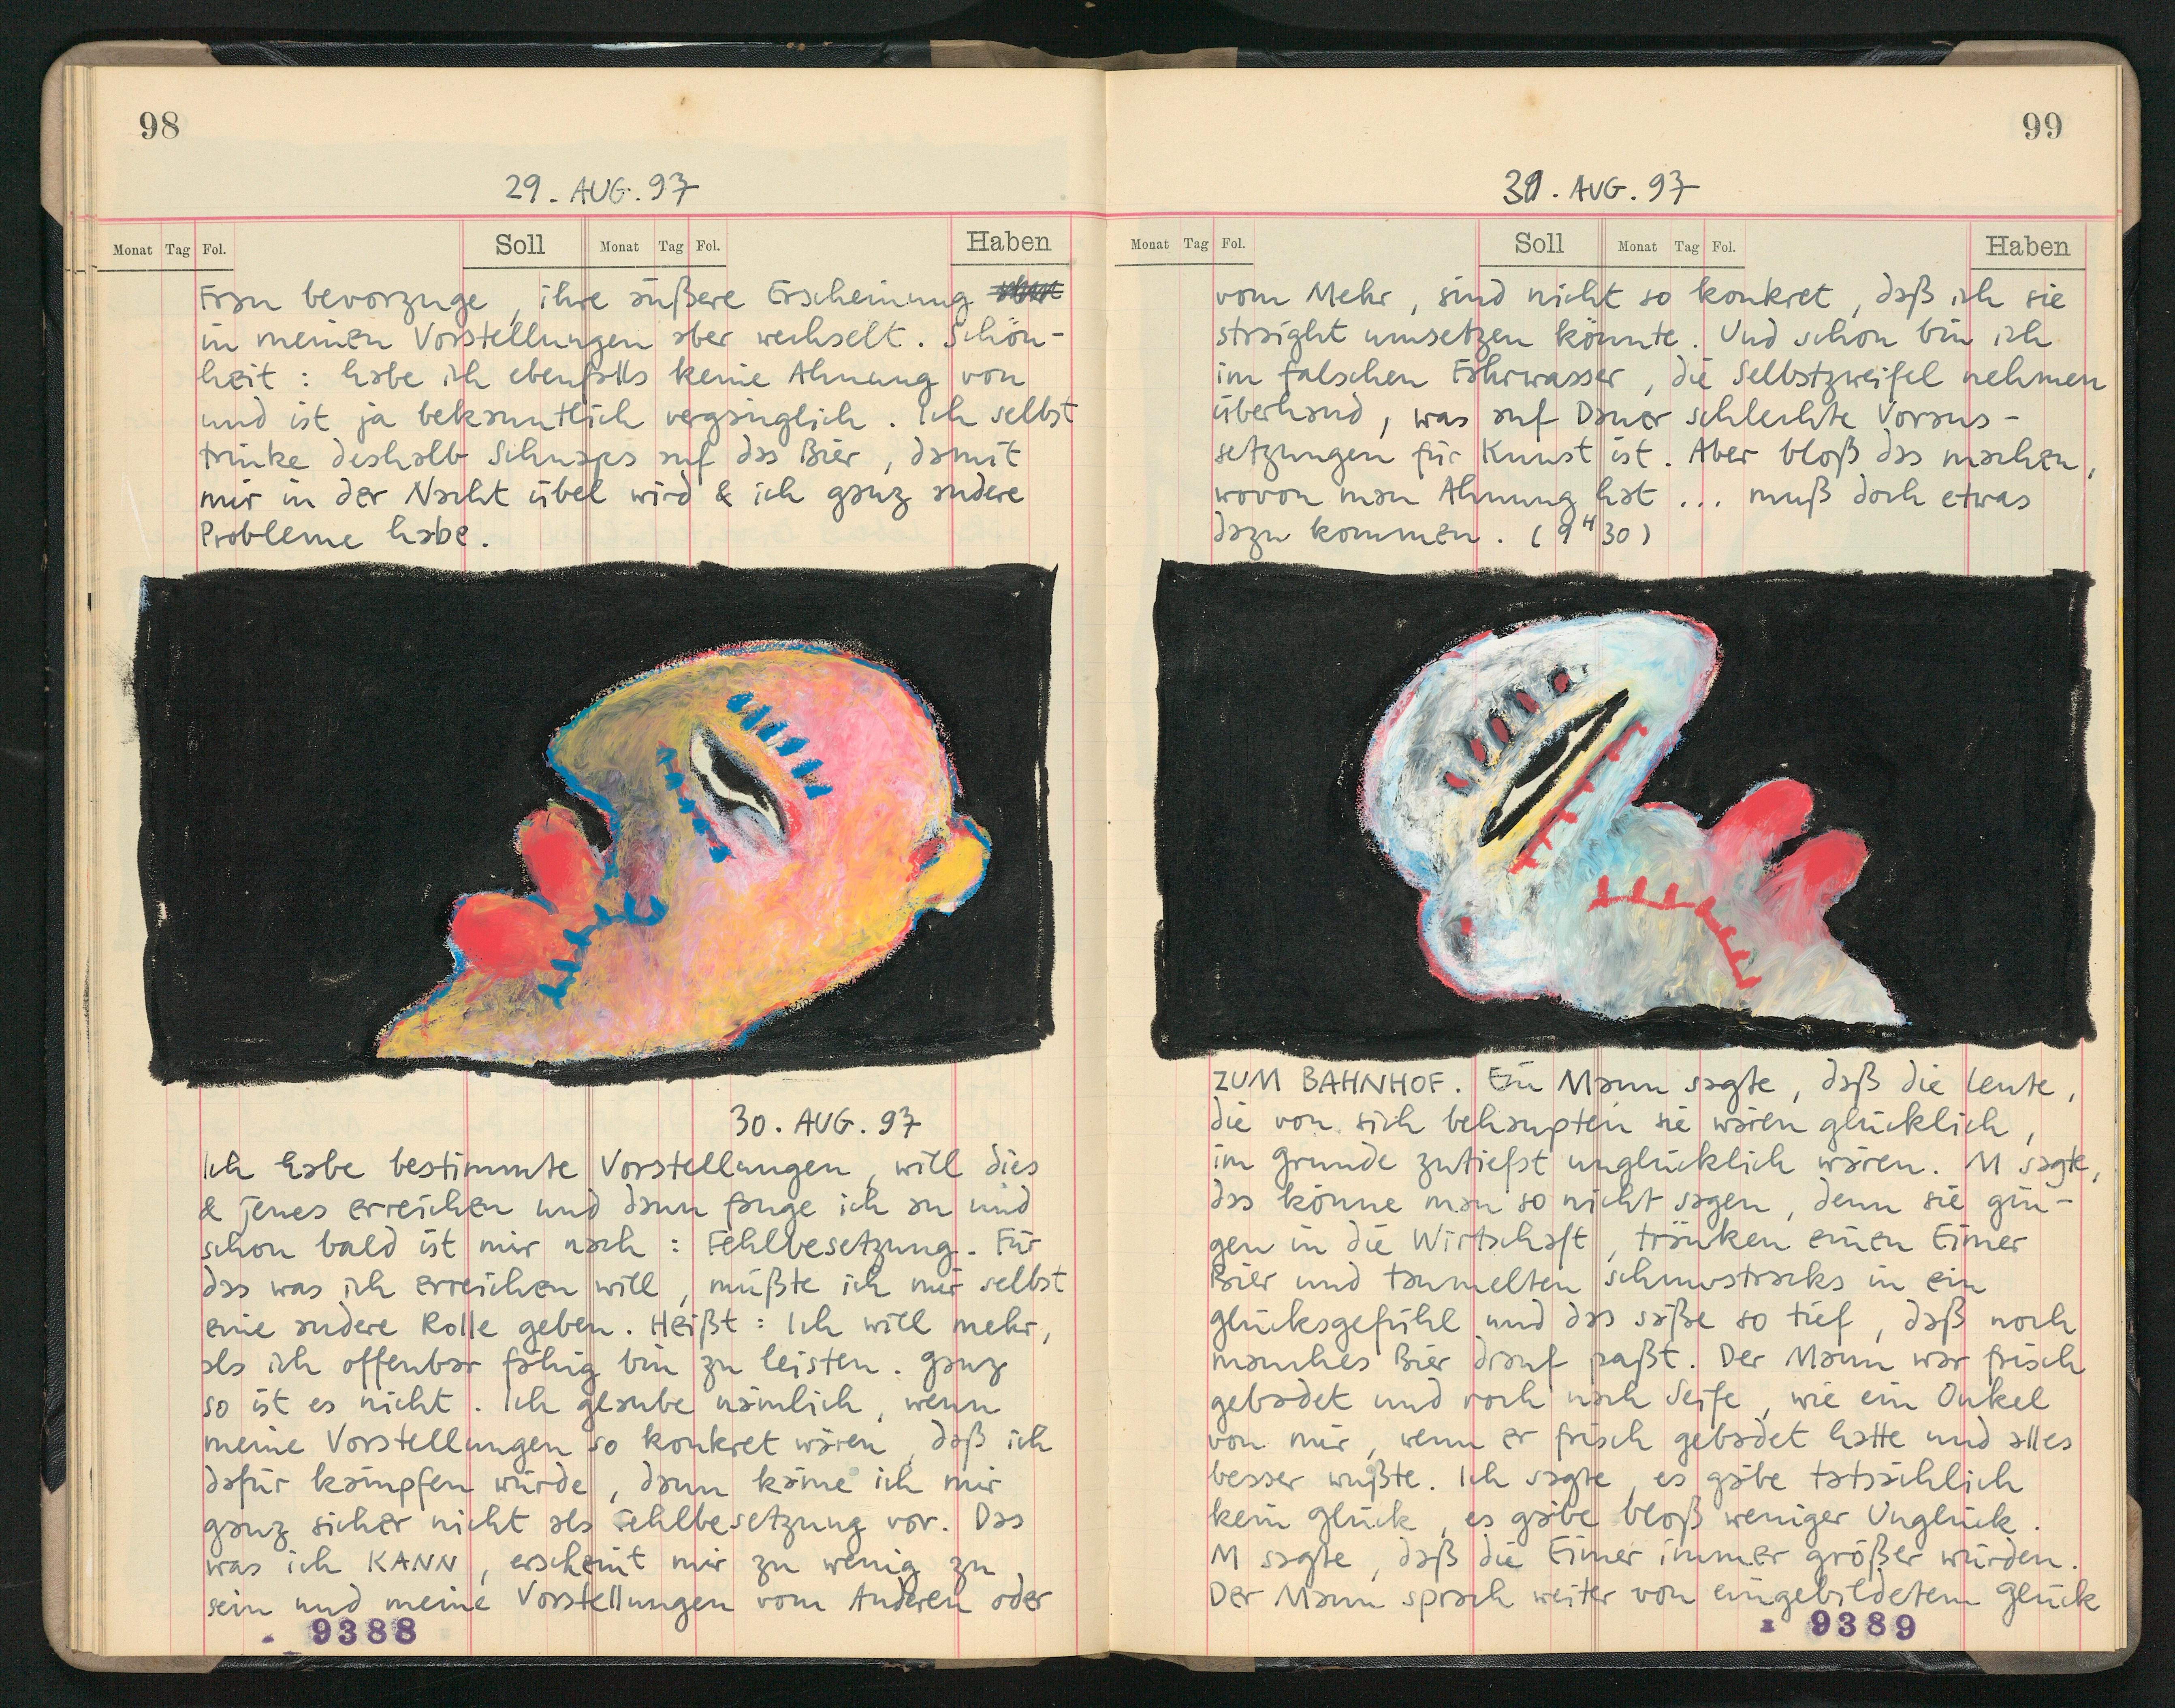 98
29. AUG. 97
Monat Tag Fol. Soll Monat Tag Fol. Haben
Frau bevorzuge, ihre äußere Erscheinung
in meinen Vorstellungen aber wechselt. Schön-
heit : habe ich ebenfalls keine Ahnung von
und ist ja bekanntlich vergänglich. Ich selbst
trinke deshalb Schnaps auf das Bier, damit
mir in der Nacht übel wird & ich ganz andere
Probleme habe.
30. AUG. 97
Ich habe bestimmte Vorstellungen, will dies
& jenes erreichen und dann fange ich an und
schon bald ist mir nach : Fehlbesetzung. Für
das was ich erreichen will, müßte ich mir selbst
eine andere Rolle geben. Heißt : Ich will mehr,
als ich offenbar fähig bin zu leisten. Ganz
so ist es nicht. Ich glaube nämlich, wenn
meine Vorstellungen so konkret wären, daß ich
dafür kämpfen würde, dann käme ich mir
ganz sicher nicht als Fehlbesetzung vor. Das
was ich KANN, erscheint mir zu wenig zu
sein und meine Vorstellungen vom Anderen oder
9388
99
31. AUG. 97
Monat Tag Fol. Soll Monat Tag Fol. Haben
vom Mehr, sind nicht so konkret, daß ich sie
straight umsetzen könnte. Und schon bin ich
im falschen Fahrwasser, die Selbstzweifel nehmen
überhand, was auf Dauer schlechte Voraus-
setzungen für Kunst ist. Aber bloß das machen,
wovon man Ahnung hat ... muß doch etwas
dazu kommen. (9H30)
ZUM BAHNHOF. Ein Mann sagte, daß die Leute,
die von sich behaupten sie wären glücklich,
im Grunde zutiefst unglücklich wären. M sagte,
das könne man so nicht sagen, denn sie gin-
gen in die Wirtschaft, tränken einen Eimer
Bier und taumelten schnurstracks in ein
Glücksgefühl und das säße so tief, daß noch
manches Bier drauf paßt. Der Mann war frisch
gebadet und roch nach Seife, wie ein Onkel
von mir, wenn er frisch gebadet hatte und alles
besser wußte. Ich sagte, es gäbe tatsächlich
kein Glück, es gäbe bloß weniger Unglück.
M sagte, daß die Eimer immer größer würden.
Der Mann sprach weiter von eingebildetem Glück
9389